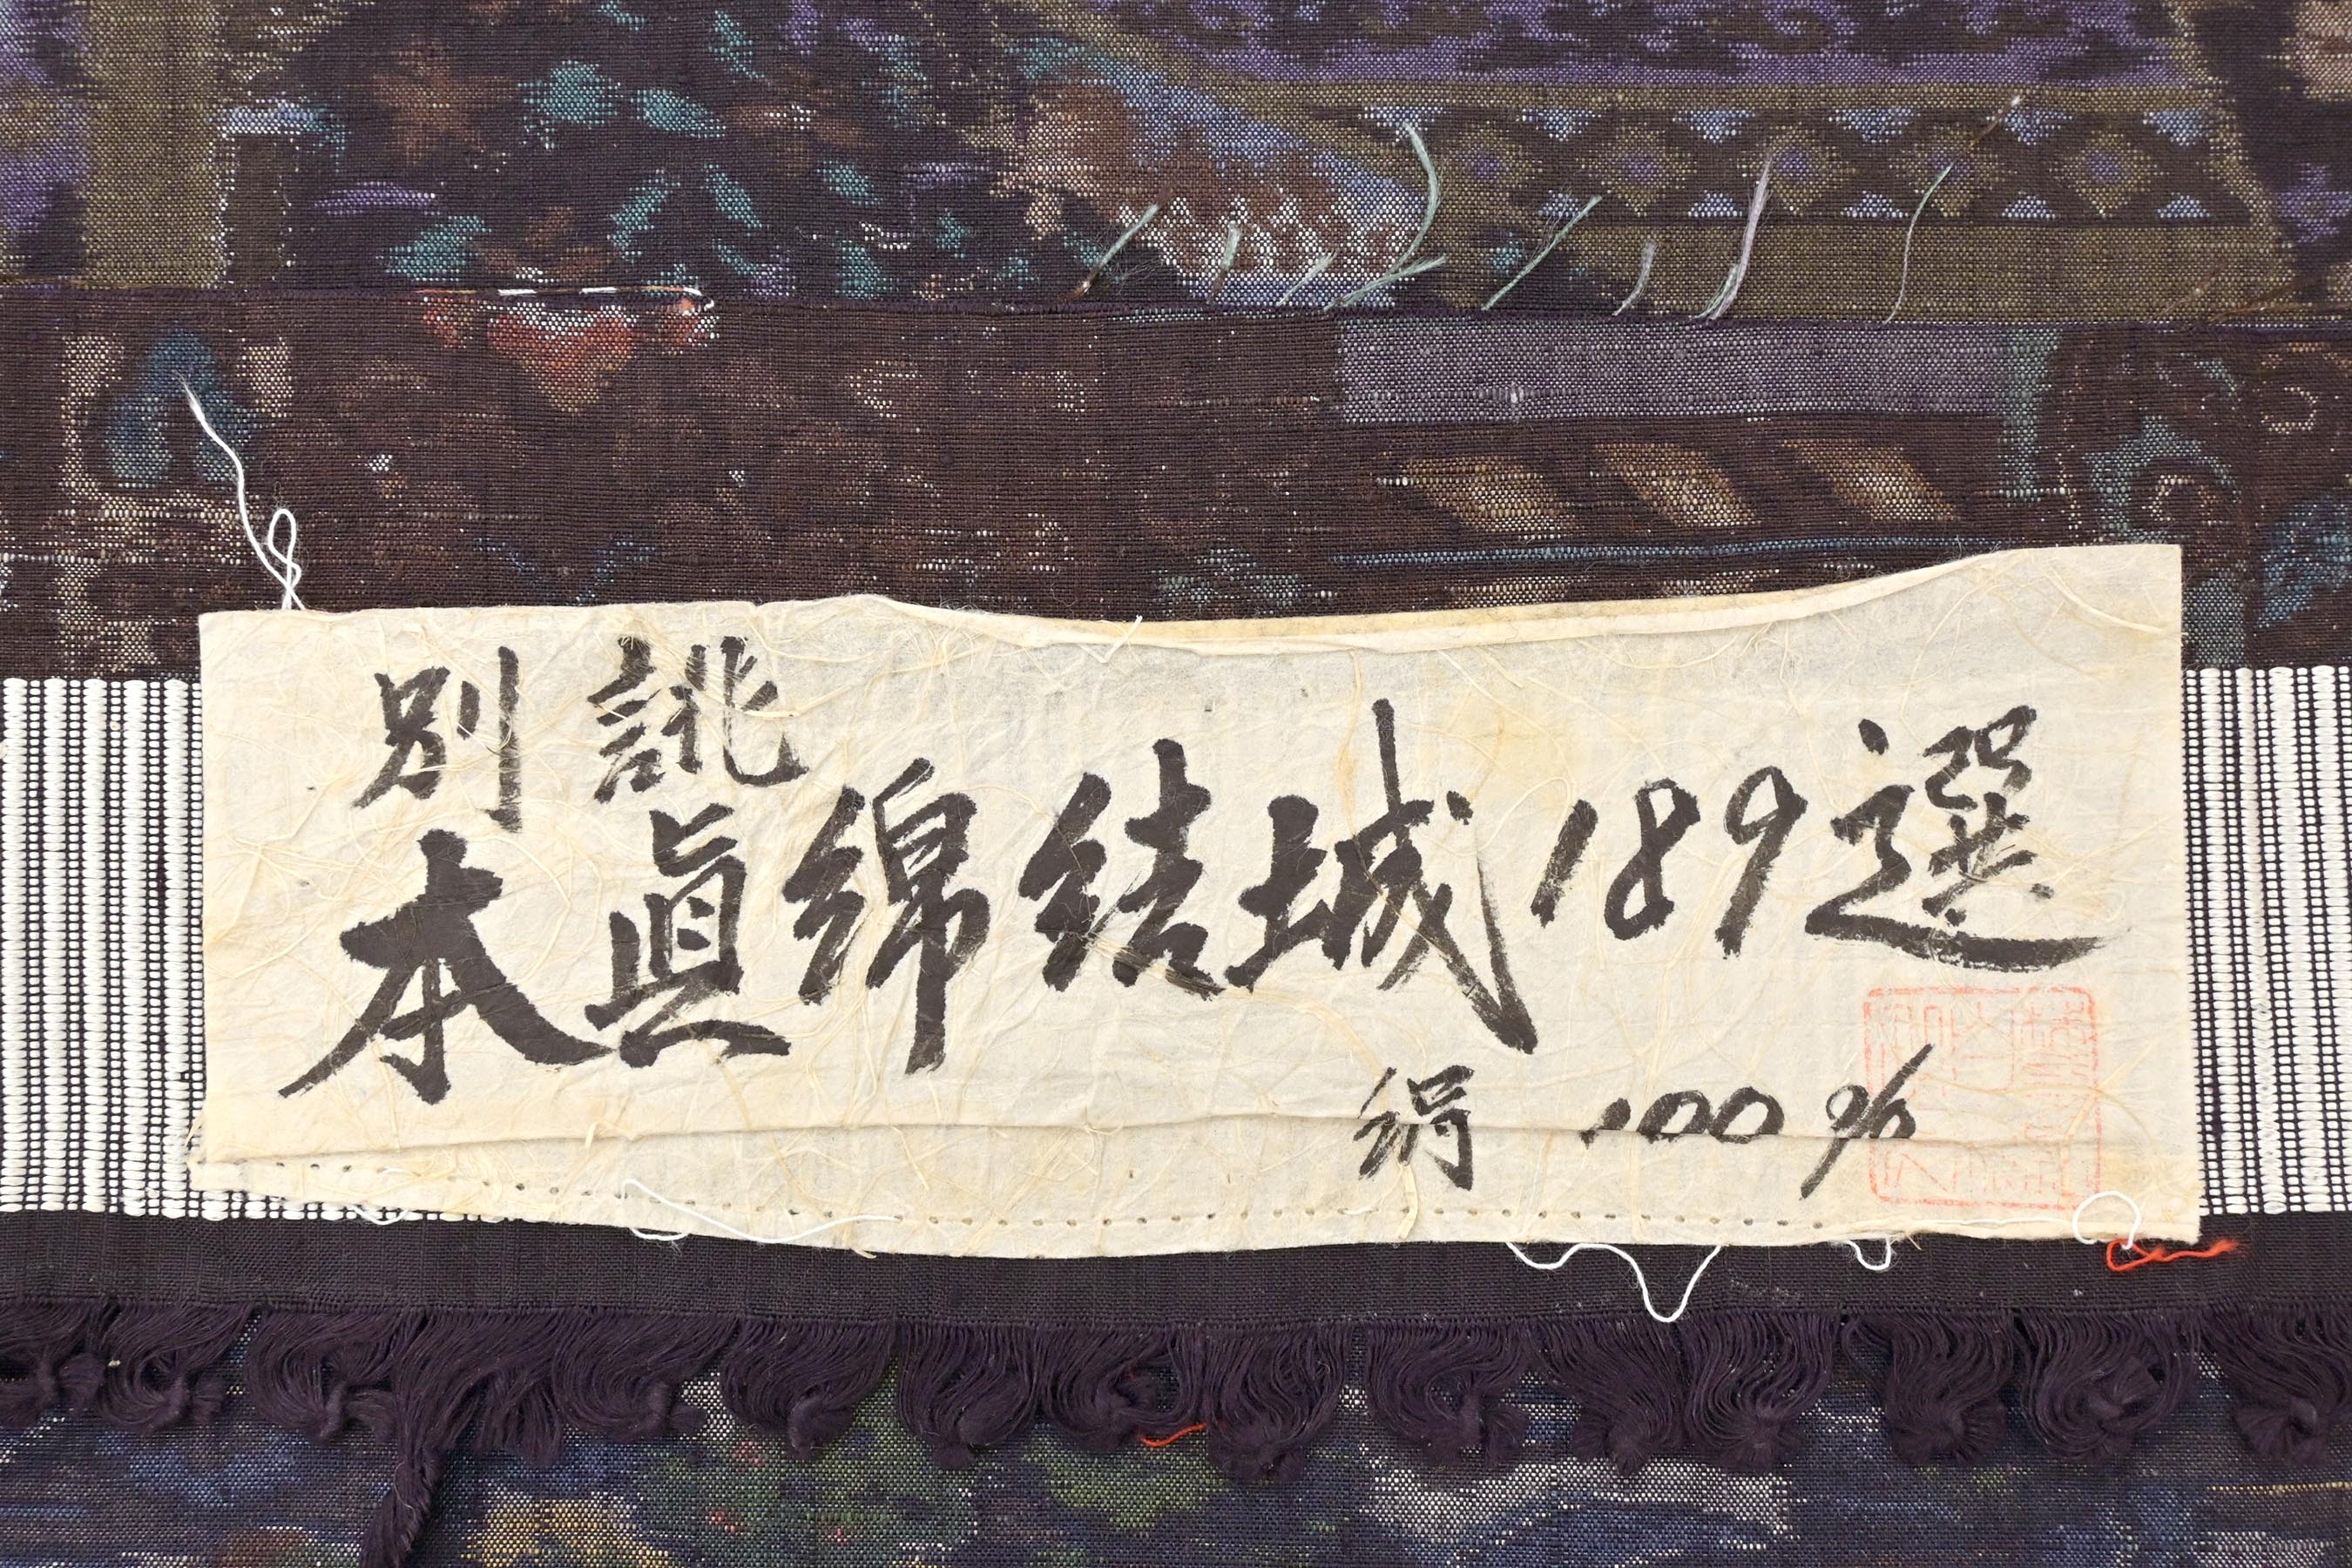 別誂
本眞綿結城189選
絹 100%